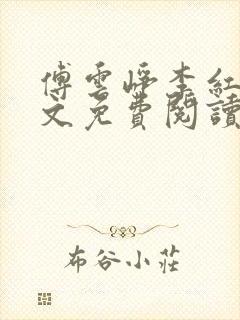 傅雲崢李紅
文免費閱讀
布谷小莊